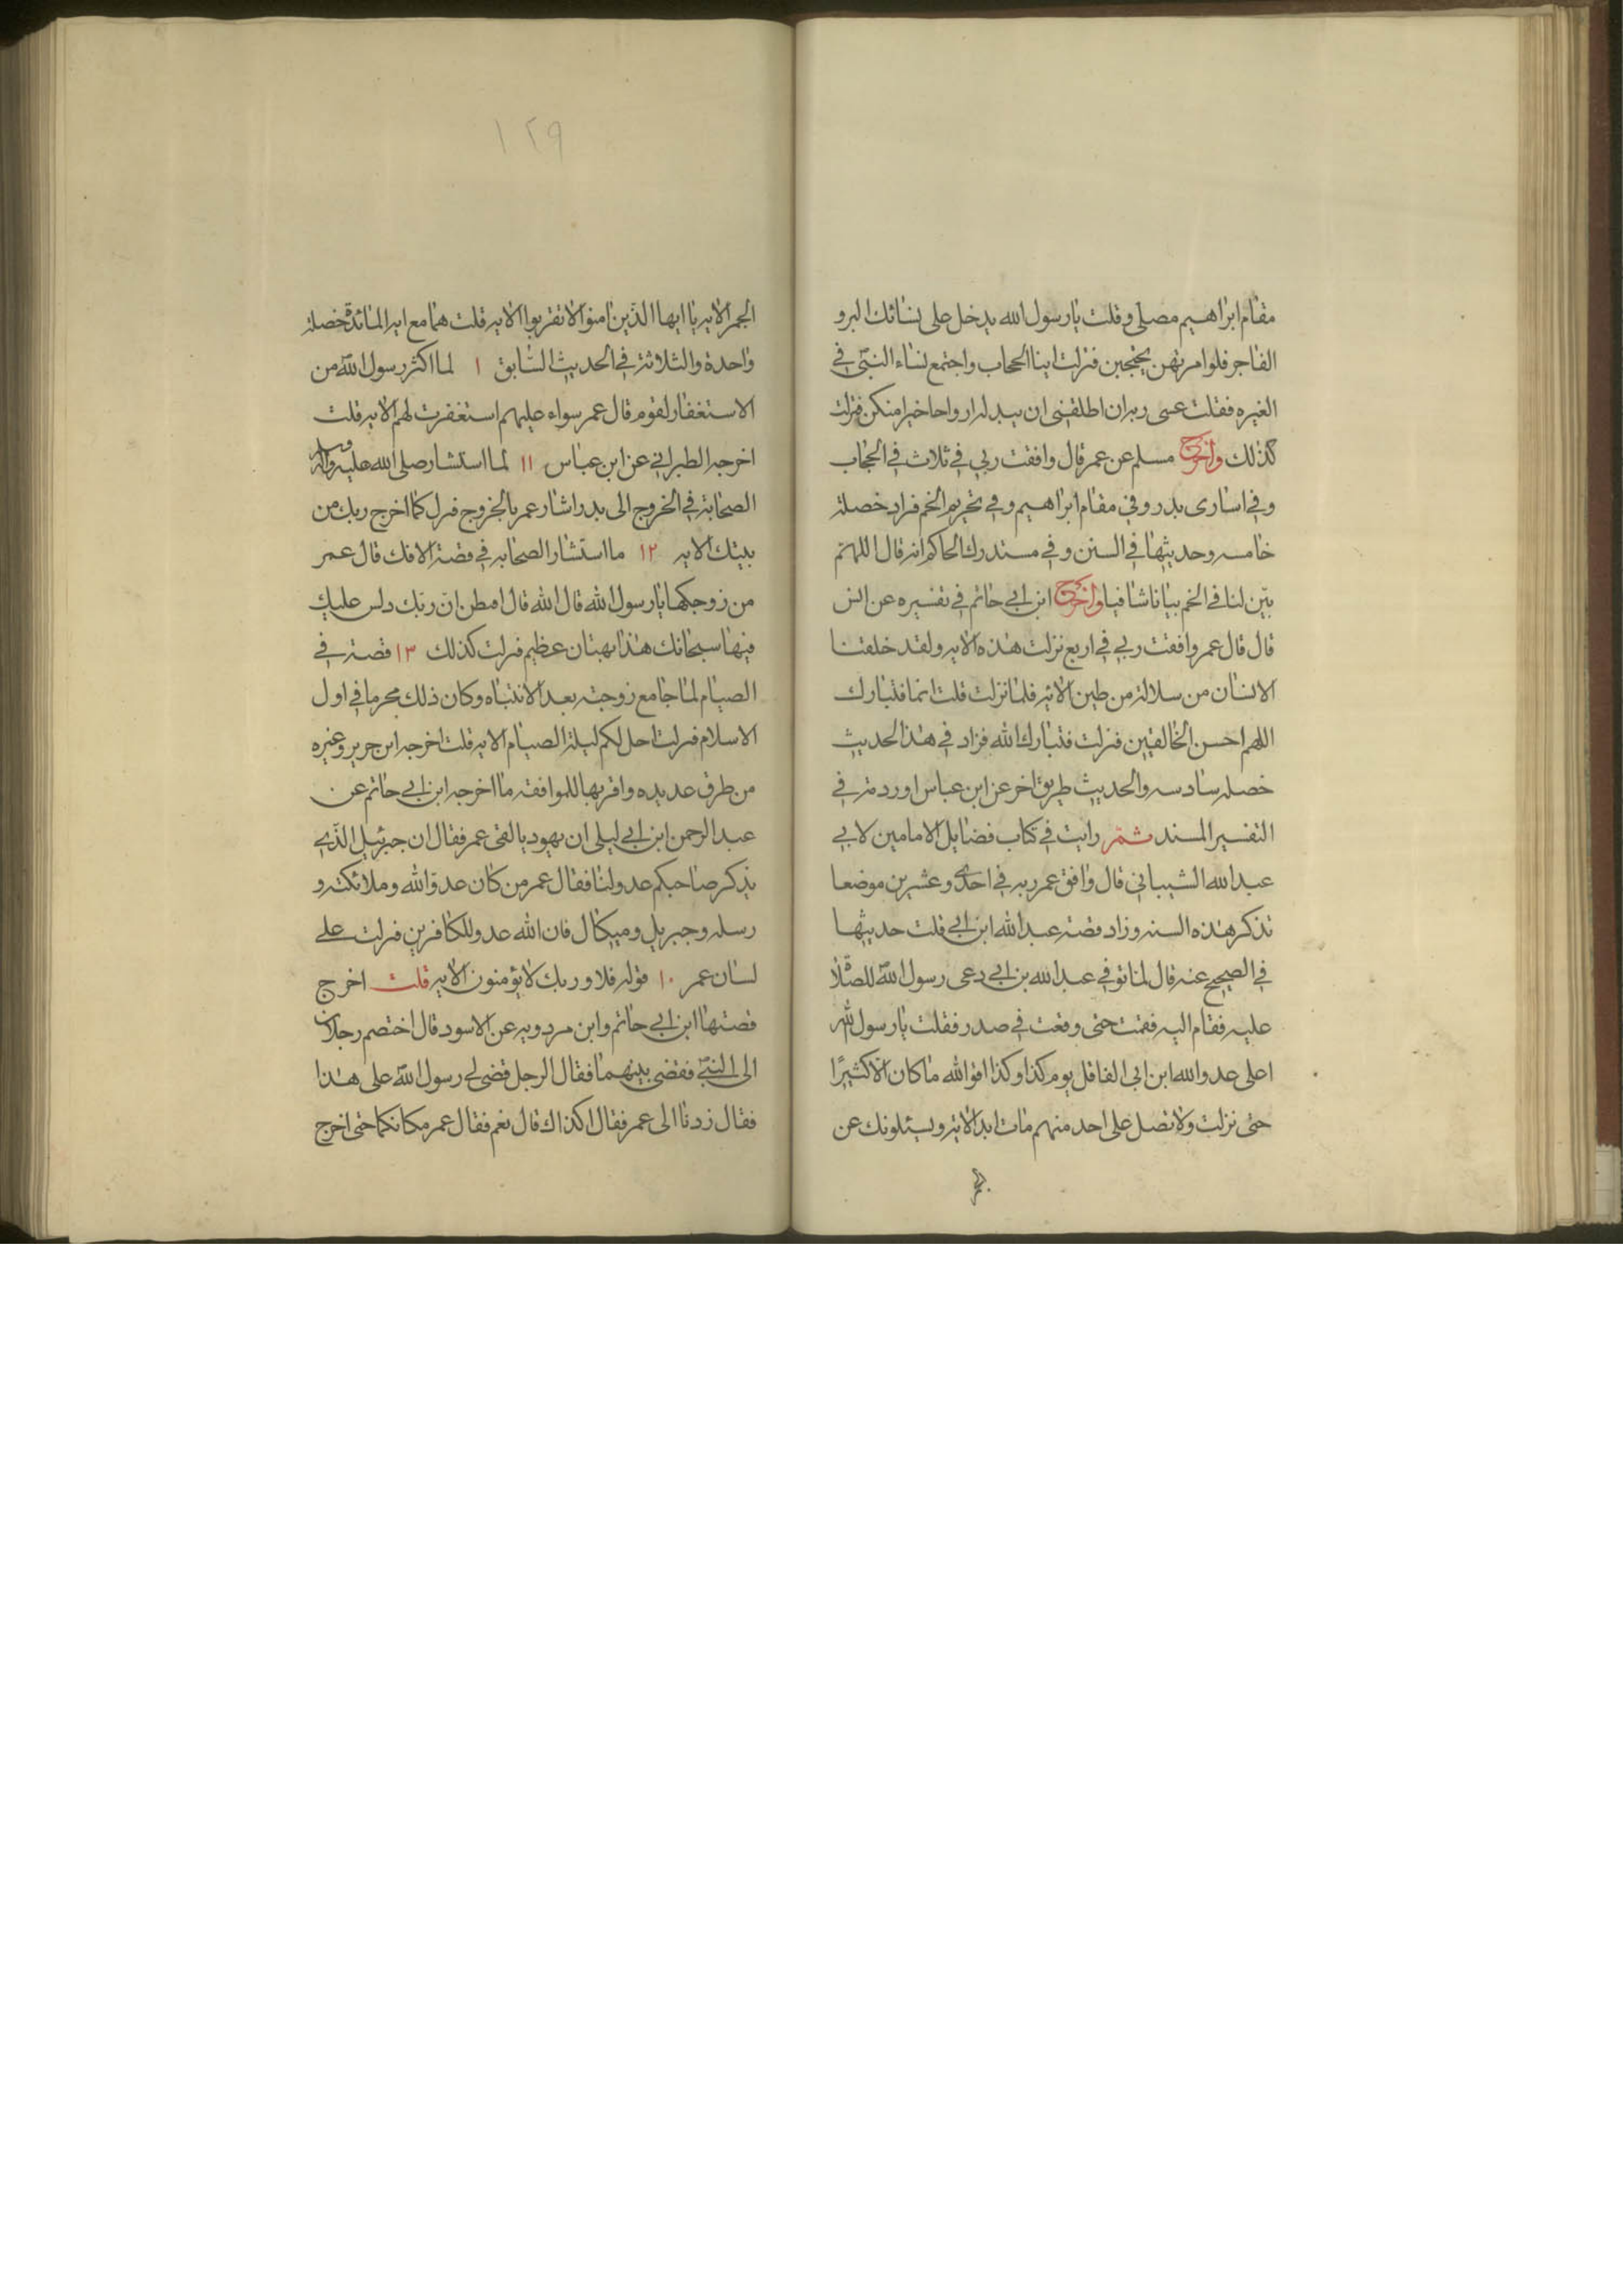 مقام ابراهيم مصلى وقلت يا رسول الله يدخل على نسائك البر و
الفاجر فلوا مرتهن يحتجبن فنزلت اينا الحجاب واجتمع نساء النبي في
الغيره فقلت عسى ربه ان اطلقنى ان يبدله ازواجا خيرا منكن فنزلت
كذلك واخرج مسلم عن عمر قال وافقت ربي في ثلاث في الحجاب
وفي اسارى بدر وفي مقام ابراهيم وفي تحريم الخمر فزاد خصلة
خامسه وحديثها في السنن وفي مستدرك الحاكم انه قال اللهم
بين لنا في الخمر بيانا شافيا واخرج ابن ابي حاتم في تفسيره عن انس
قال قال عمر وافقت ربي في اربع نزلت هذه الايه ولقد خلقنا
الانسان من سلالة من طين الايه فلما نزلت قلت انما فتبارك
اللهم احسن الخالقين فنزلت فتبارك الله فزاد في هذا الحديث
خصله سادسه والحديث طريق اخر عن ابن عباس اوردته في
التفسير المسند ثم رايت في كتاب فضايل الامامين لابي
عبد الله الشيباني قال وافق عمر ربه في احدى وعشرين موضعا
تذكر هذه الستة وزاد قصة عبد الله ابن ابي قلت حديثها
في الصحيح عنه قال لما توفي عبد الله بن ابي دعى رسول الله للصلاة
عليه فقام اليه فقمت حتى وقعت في صدره فقلت يا رسول الله
اعلى عدو الله ابن ابى القائل يوم كذا وكذا افو الله ما كان الا كثيرا
حتى نزلت ولا تصل على احد منهم مات ابدا الاية ويسئلونك عن
١٢٩
الخمر الايه يا ايها الذين امنوا لا تقربوا الايه قلت هما مع ايه المائدة خصلة
واحدة والثلاثة في الحديث السابق ١ لما اكثر رسول الله من
الاستغفار لقوم قال عمر سواء عليهم استغفرت لهم الايه قلت
اخرجه الطبراني عن ابن عباس ١١ لما استشار صلى الله عليه واله وسلم
الصحابة في الخروج الى بدر اشار عمر بالخروج فنزل كما اخرج ربك من
بيتك الايه ١٢ ما استشار الصحابه في قصة الافك قال عمر
من زوجكها يا رسول الله قال الله قال افتظن ان ربك دلس عليك
فيها سبحانك هذا بهتان عظيم فنزلت كذلك ١٣ قصته في
الصيام لما جامع زوجته بعد الانتباه وكان ذلك محرما في اول
الاسلام فنزلت احل لكم ليلة الصيام الايه قلت اخرجه ابن جرير وغيره
من طرق عديده واقربها للموافقه ما اخرجه ابن ابي حاتم عن
عبد الرحمن ابن ابي ليلى ان يهوديا لقى عمر فقال ان جبرئيل الذي
يذكر صاحبكم عدو لنا فقال عمر من كان عدوا لله وملائكته و
رسله وجبريل وميكال فان الله عدو للكافرين فنزلت على
لسان عمر ١٠ قوله فلا وربك لا يؤمنون الايه قلت اخرج
قصتها ابن ابي حاتم وابن مردويه عن الاسود قال اختصم رجلان
الى النبي فقضى بينهما فقال الرجل قضى لي رسول الله على هذا
فقال زدنا الى عمر فقال اكذاك قال نعم فقال عمر مكانكما حتى اخرج